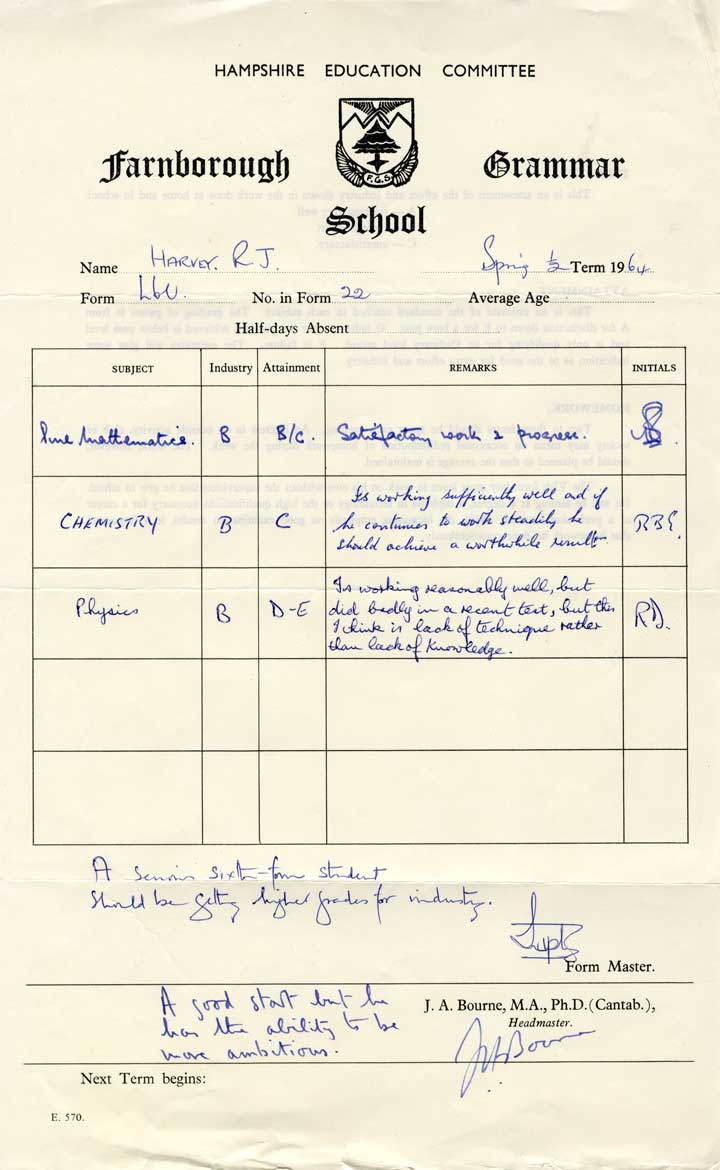 HAMPSHIRE EDUCATION COMMITTEE
Farnborough Grammar
F.G.S
School
Name HARVEY. R J. Spring ½ Term 1964
Form L6U. No. in Form 22 Average Age
Half-days Absent
SUBJECT Industry Attainment REMARKS INITIALS
Pure Mathematics. B B/C. Satisfactory work & progress.
CHEMISTRY B C Is working sufficiently well and if
he continues to work steadily he
should achieve a worthwhile result RBE.
Physics B D-E Is working reasonably well, but
did badly in a recent test, but this
I think is lack of technique rather
than lack of knowledge. RD.
A serious sixth-form student
should be getting higher grades for industry.
Form Master.
A good start but he
has the ability to be
more ambitious.
J. A. Bourne, M.A., Ph.D.(Cantab.),
Headmaster.
JABourne
Next Term begins:
E. 570.